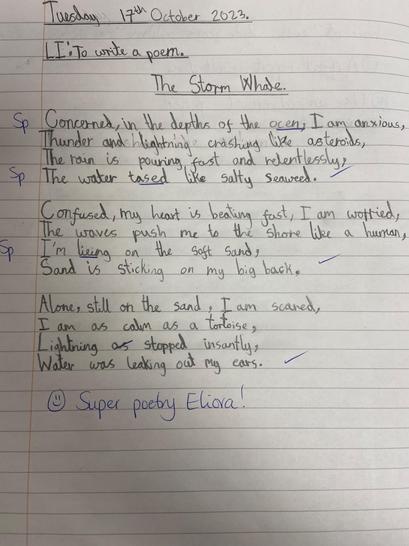 Tuesday 17th October 2023.
LI: To write a poem.
The Storm Whale.
Sp Concerned, in the depths of the ocen, I am anxious,
Thunder and hlightning crashing like asteroids,
The rain is pouring fast and relentlessly,
Sp The water tased like salty seaweed.
Confused, my heart is beating fast, I am worried,
The waves push me to the shore like a human,
Sp I'm lieing on the soft sand,
Sand is sticking on my big back.
Alone, still on the sand, I am scared,
I am as calm as a tortoise,
Lightning as stopped insantly,
Water was leaking out my ears.
Super poetry Eliora!